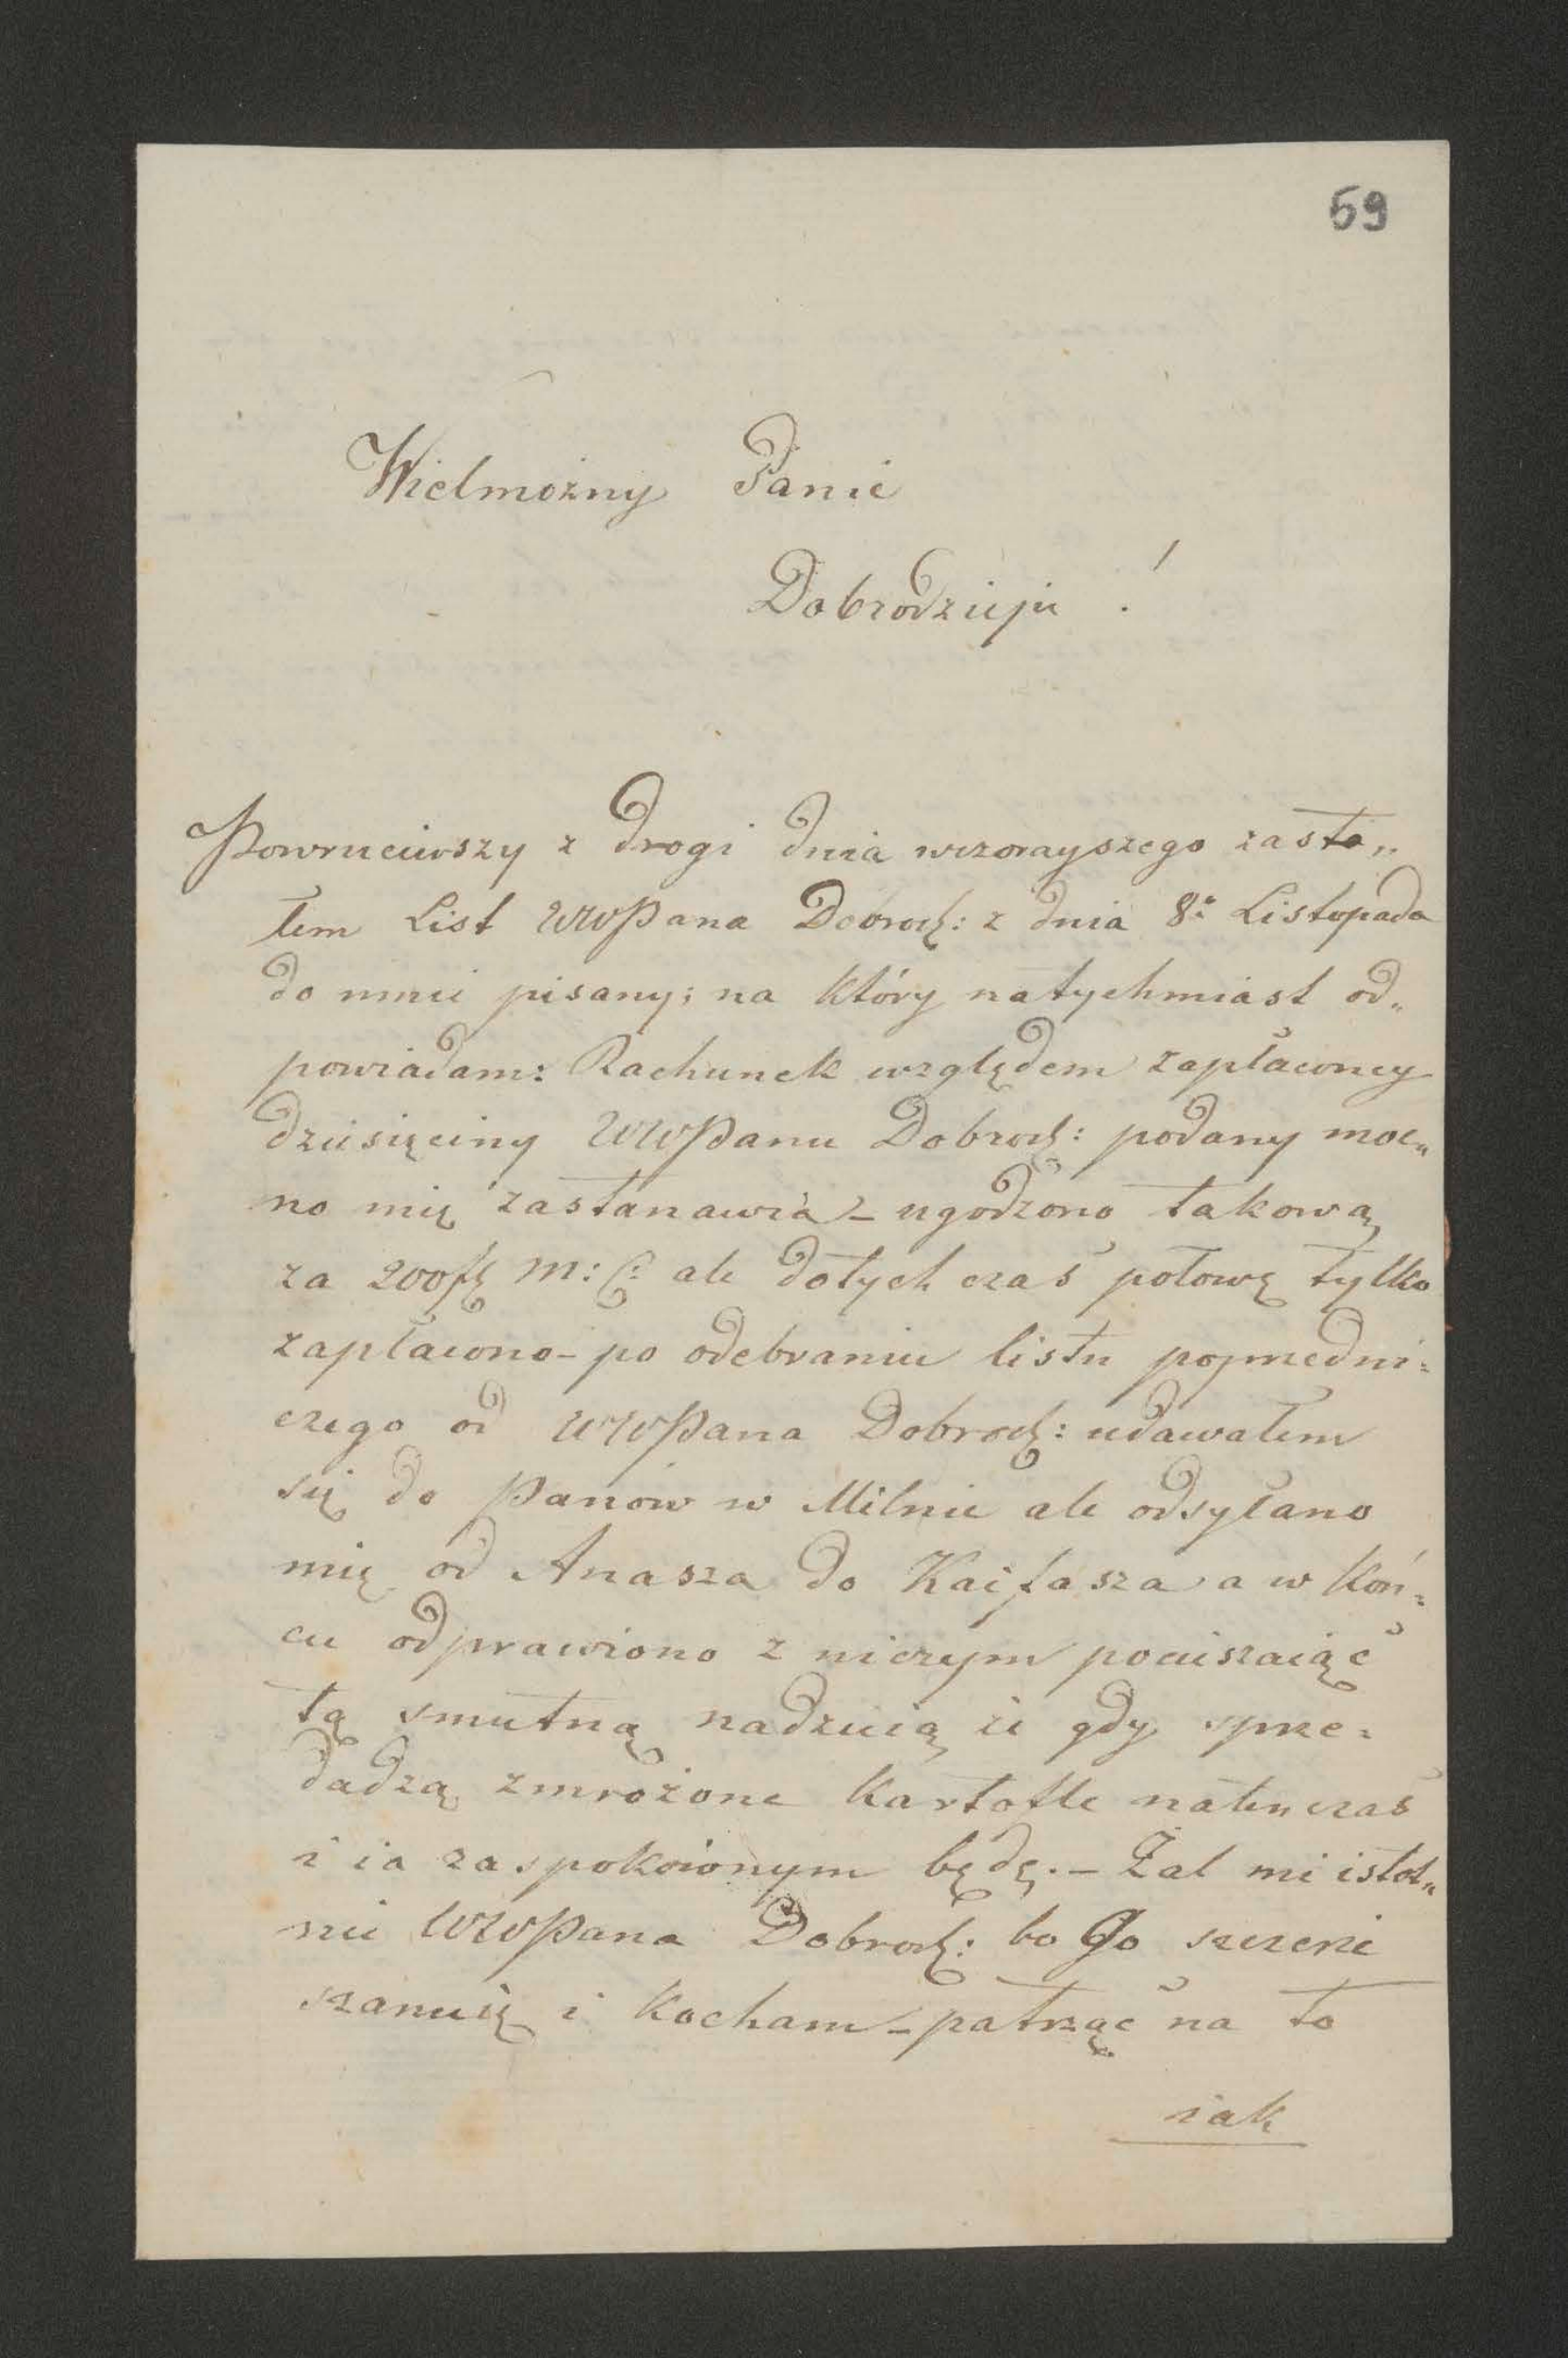 69
Wielmożny Panie
Dobrodzieju !
Powruciwszy z drogi dnia wczorayszego zasta„
łem List WWPana Dobrodz: z dnia 8º Listopada
do mnie pisany; na który natychmiast od„
powiadam: Rachunek względem zapłaconey
dziesięciny WWPanu Dobrodz: podany moc„
no mię zastanawia – ugodzono takową
za 200 fl M: C: ale dotych czas połowę tylko
zapłacono – po odebraniu listu poprzedni=
czego od WWPana Dobrodz: udawałem
się do Panów w Milnie ale odsyłano
mię od Anasza do Kaifasza a w koń=
cu odprawiono z niczym pocieszaiąć
tą smutną nadzieią że gdy sprze=
dadzą zmrożone Kartofle naten czas
i ia zaspokoionym będę. – Żal mi istot„
nie WWPana Dobrodz: bo Go szczerze
szanuię i kocham – patrząć na to
iak